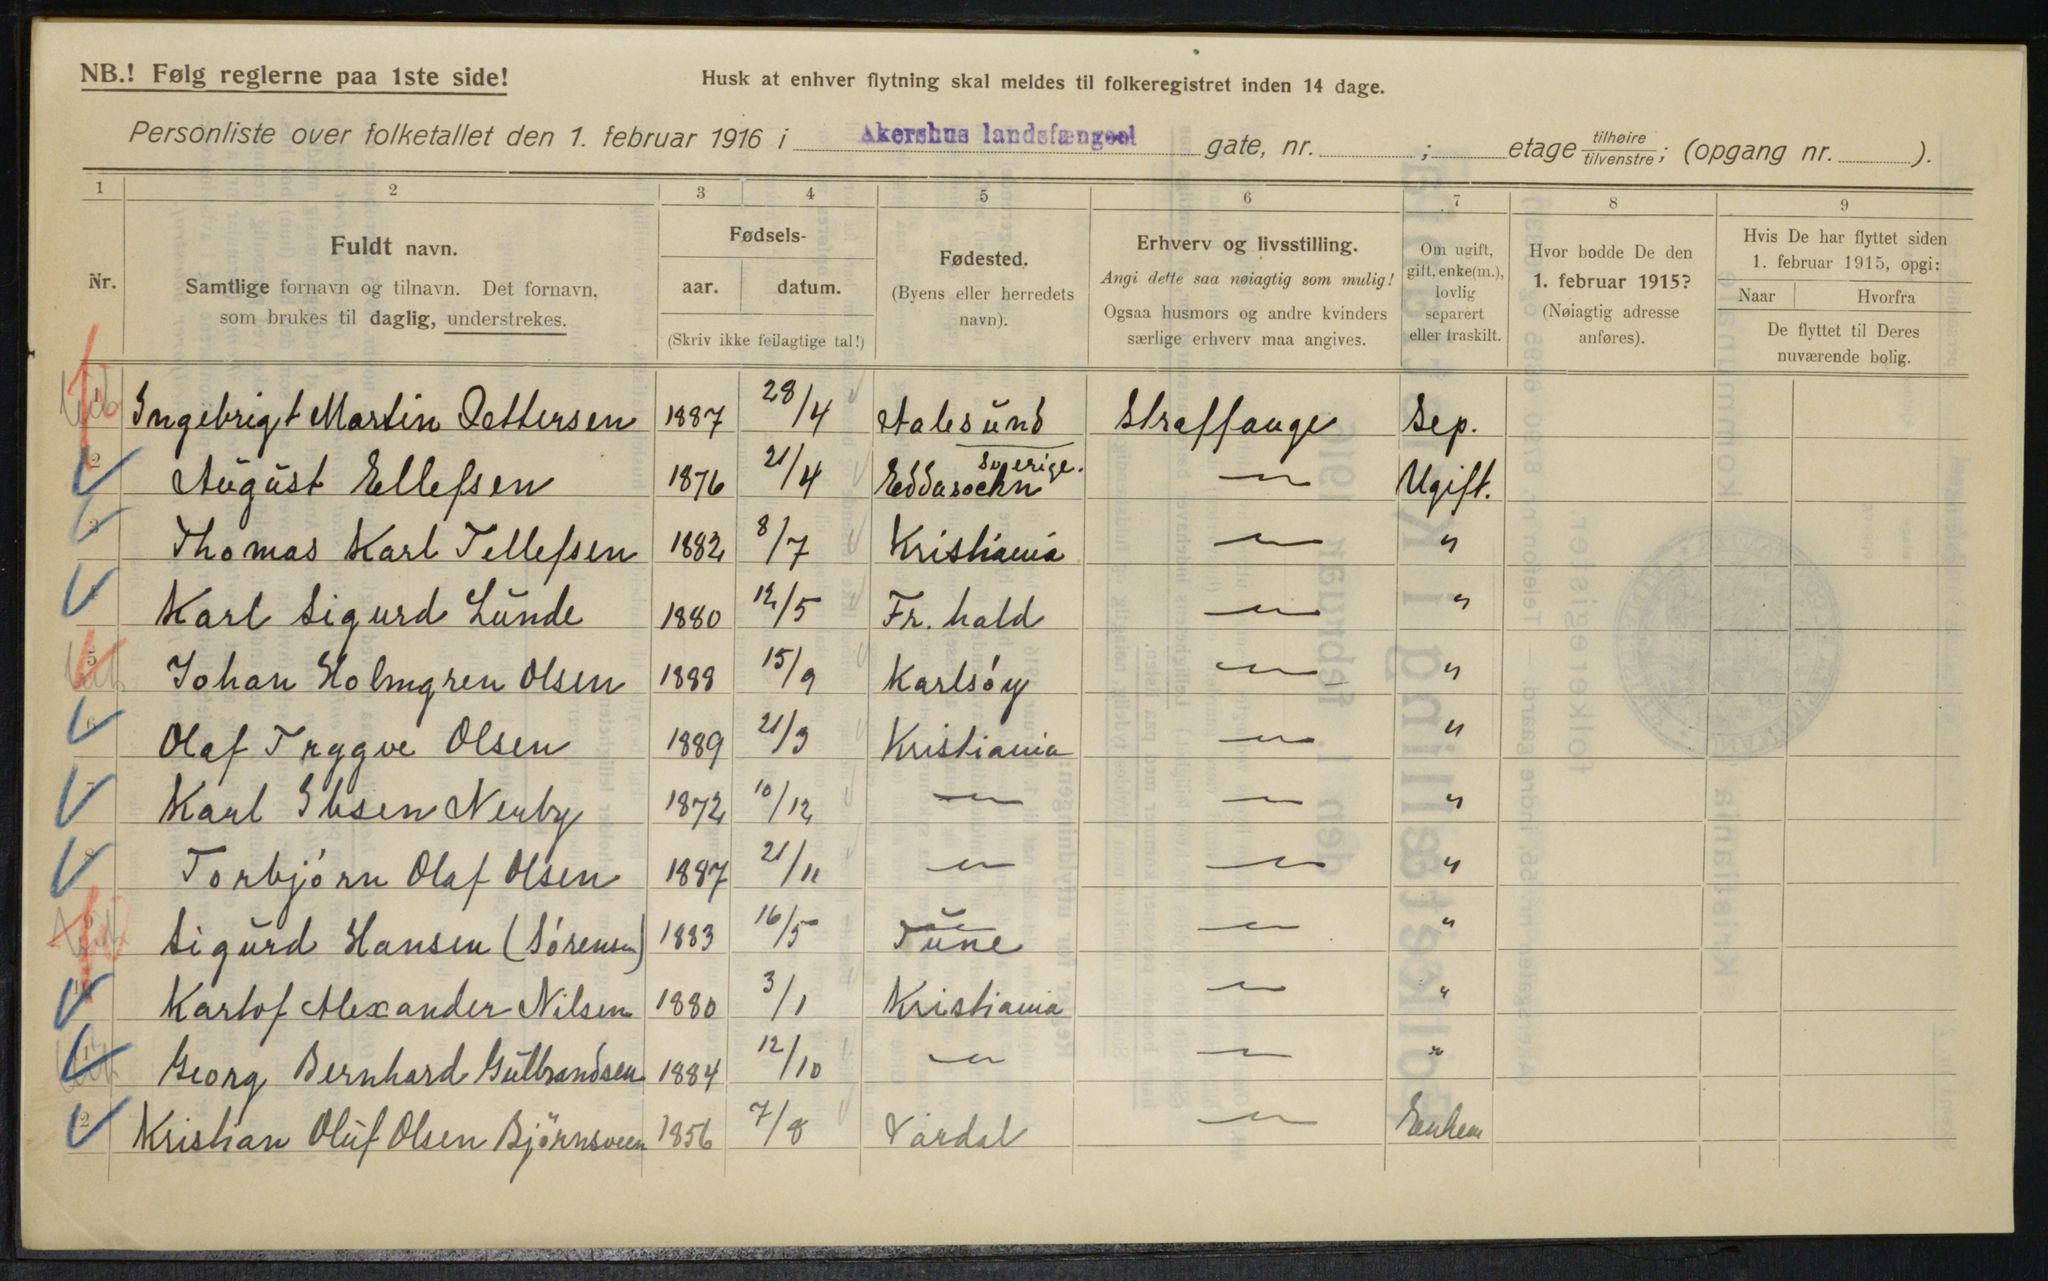 NB.! Følg reglerne paa 1ste side!
Husk at enhver flytning skal meldes til folkeregistret inden 14 dage.
Personliste over folketallet den 1. februar 1916 i Akershus landsfængsel gate, nr. ; etage tilhøire/tilvenstre; (opgang nr. ).
1 2 3 4 5 6 7 8 9
Nr.
Fuldt navn.
Samtlige fornavn og tilnavn. Det fornavn,
som brukes til daglig, understrekes.
Fødsels-
aar. datum.
(Skriv ikke feilagtige tal!)
Fødested.
(Byens eller herredets
navn).
Erhverv og livsstilling.
Angi dette saa nøiagtig som mulig!
Ogsaa husmors og andre kvinders
særlige erhverv maa angives.
Om ugift,
gift, enke(m.),
lovlig
separert
eller fraskilt.
Hvor bodde De den
1. februar 1915?
(Nøiagtig adresse
anføres).
Hvis De har flyttet siden
1. februar 1915, opgi:
Naar Hvorfra
De flyttet til Deres
nuværende bolig.
1 Ingebrigt Martin Pettersen 1887 28/4 Aalesund Straffange Sep.
2 August Ellefsen 1876 21/4 Sverige. Ugift.
3 Thomas Karl Tellefsen 1882 8/7 Kristiania — "
Karl Sigurd Lunde 1880 12/5 Fr. hald — "
5 Johan Holmgren Olsen 1888 15/9 Karlsöy — "
6 Olaf Trygve Olsen 1889 21/3 Kristiania — "
7 Karl Ibsen Nerby 1872 10/12 — — "
8 Torbjörn Olaf Olsen 1887 21/11 — — "
Sigurd Hansen (Sörensen) 1883 16/5 Tune — "
Karlof Alexander Nilsen 1880 3/1 Kristiania — "
11 Georg Bernhard Gulbrandsen 1884 12/10 — — "
12 Kristian Oluf Olsen Björnsveen 1856 7/8 Vardal — Enkem